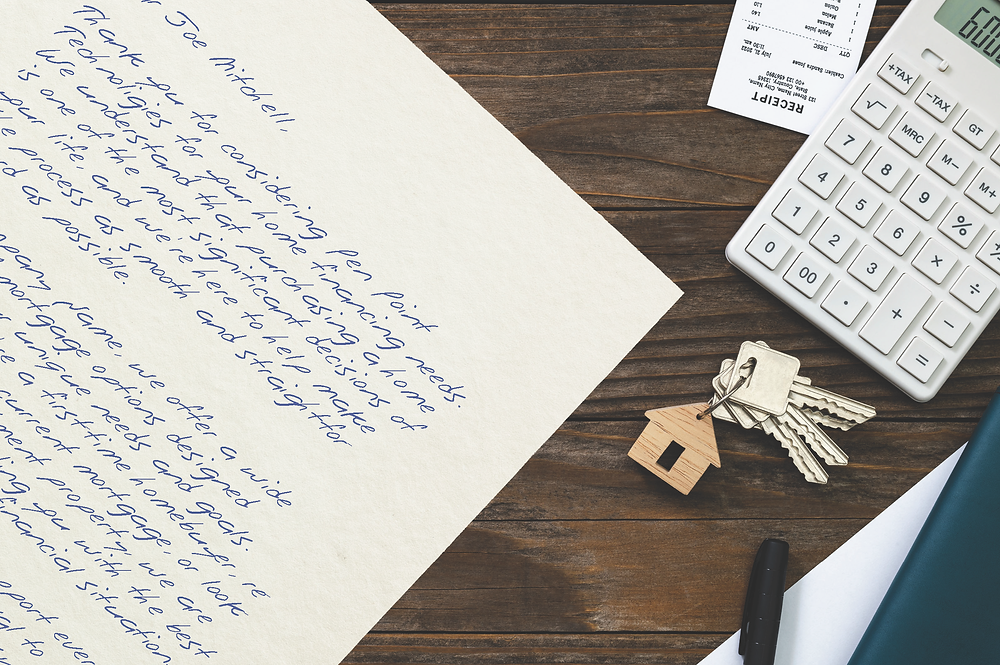 Joe Mitchell,
Thank you for considering Pen Point
Technoligies for your home financing needs.
We understand that purchasing a home
is one of the most significant decisions of
your life, and we're here to help make
process as smooth and straightfor
rd as possible.
pany Name, we offer a wide
mortgage options designed
unique needs and goals.
e a first-time homebuyer, re
current mortgage, or look
ment property, we are
ing you with the best
financial situation
pport ever
al to
RECEIPT
123 Street Name, City Name,
State, Country, 12345
+00 123 4567890
Cashier: Sandra Jones
July 21, 2022
11:30 am.
QTY DESC AMT
1 Apple juice 140
1 Banana 120
1 Melon
1 Onion
+TAX -TAX GT
√ MRC M- M+
7 8 9 % 
4 5 6 × ÷
1 2 3 + −
0 00 · =